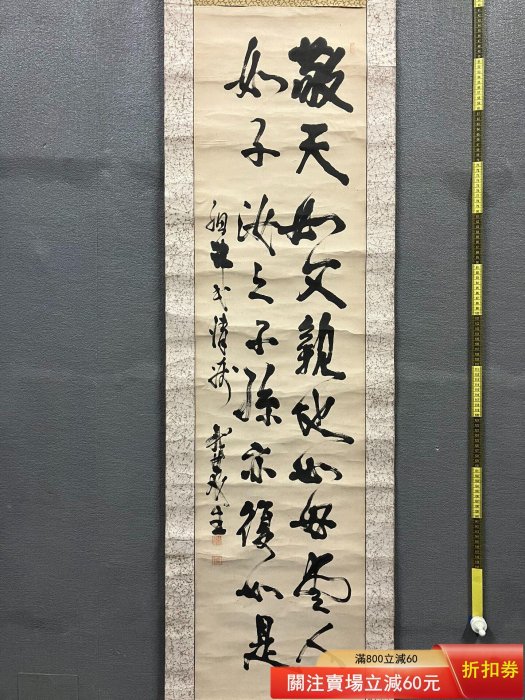 敬天如父親地如母愛人
如子汝之子孫亦復如是
滿800立減60
關注賣場立減60元
折扣券